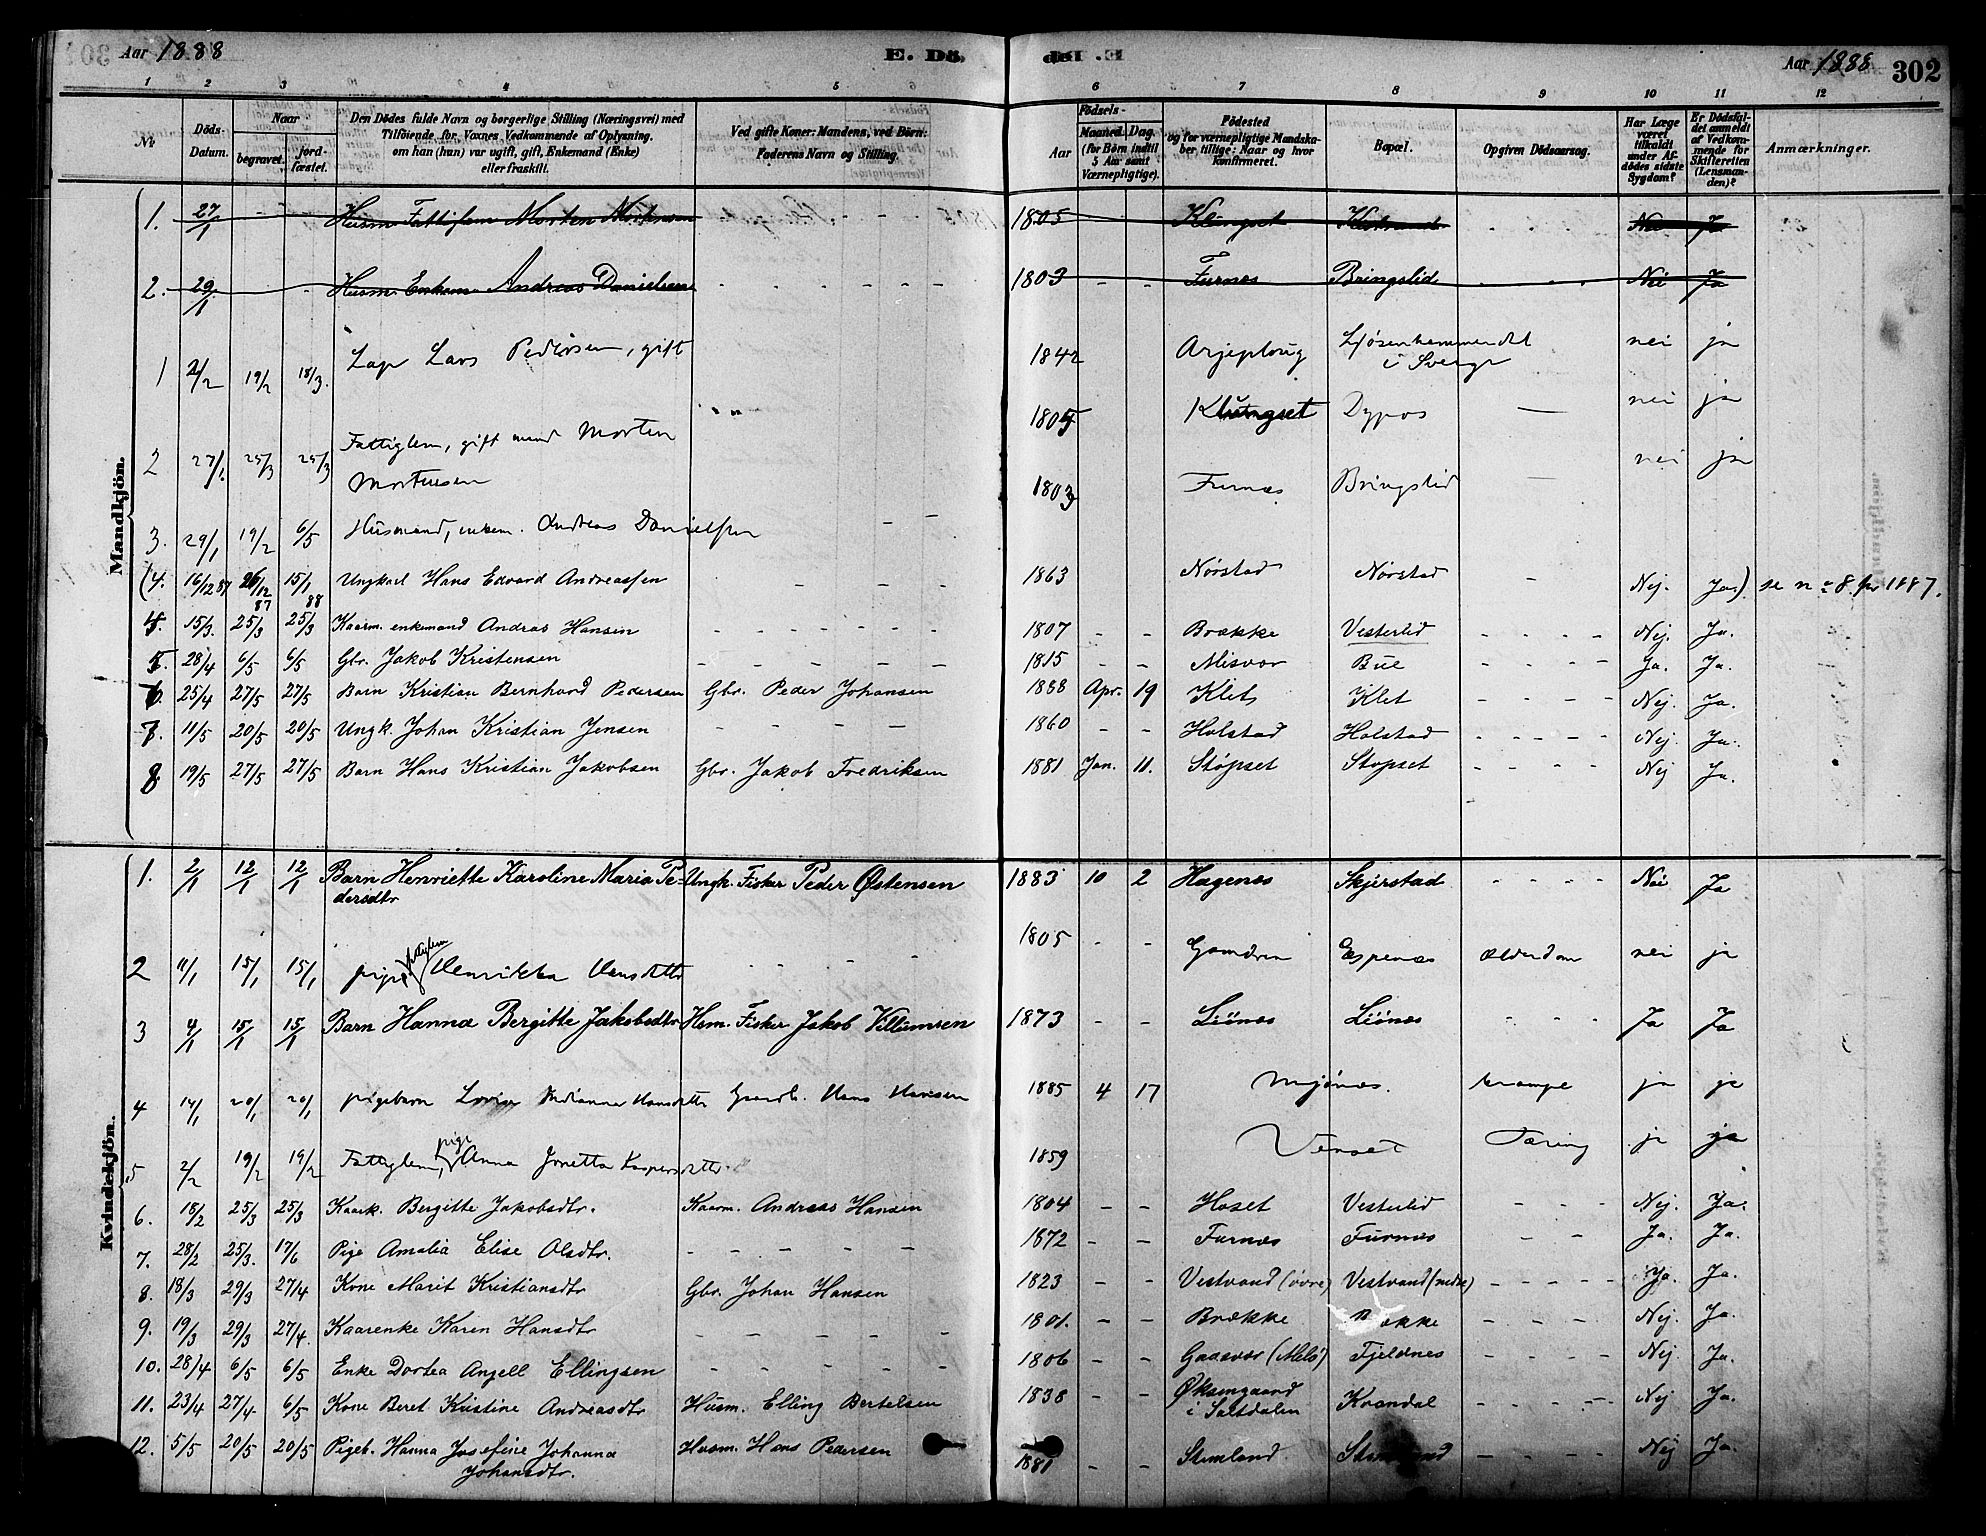 Aar 1888 E. Dö- del .E Aar 1888 302
1 2 3 4 5 6 7 8 9 10 11 12
No Döds-Datum. Naar begravet. jord-fæstet. Den Dödes fulde Navn og borgerlige Stilling (Næringsvei) med Tilföiende for Voxnes Vedkommende af Oplysning, om han (hun) var ugift, gift, Enkemand (Enke) eller fraskilt. Ved gifte Koner: Mandens, ved Börn: Faderens Navn og Stilling. Födsels- Aar Maaned. Dag. (for Börn indtil 5 Aar samt Værnepligtige). Födested og for værnepligtige Mandskaber tillige: Naar og hvor konfirmeret. Bopæl. Opgiven Dödsaarsag. Har Læge været tilkaldt under Afdödes sidste Sygdom? Er Dödsfaldet anmeldt af Vedkommende for Skifteretten (Lensmanden)? Anmærkninger.
Mandkjön.
1. 27/1 Husm. Fattiglem Morten Mortensen 1805 Klungset Nei Ja
2. 29/1 Husm. Enkem. Andreas Danielsen 1803 Furnæs Bringslid Nei Ja
1 2/2 19/2 18/3. Lap Lars Pedersen, gift 1842 Arjeploug i Sverge nei ja
2 27/1. 25/3 25/3 Fattiglem, gift mand Morten 1805 Klungset Dypos nei ja
Mortensen
3. 29/1 19/2 6/5 Husmand, enkem. Andreas Danielsen 1803 Furnæs Bringslid nei ja
(4. 16/12 87 26/12 87 15/1 88 Ungkarl Hans Edvard Andreassen 1863 Nørstad Nørstad Nej. Ja.) se no 8 for 1887.
4. 15/3. 25/3 25/3 Kaarm. enkemand Andras Hansen 1807 Brække Vesterlid Nej. Ja.
5. 28/4 6/5 6/5 Gbr. Jakob Kristensen 1815 Misvær Bue Ja. Ja.
6. 25/4 27/5 27/5 Barn Kristian Bernhard Pedersen Gbr. Peder Johansen 1888 Apr. 19 Klet Klet Nej. Ja.
7. 11/5 20/5 20/5 Ungk. Johan Kristian Jensen 1860 Holstad Holstad Nej. Ja.
8 19/5 27/5 27/5 Barn Hans Kristian Jakobsen Gbr. Jakob Fredriksen 1881 Jan. 11. Støpset Støpset Nej Ja.
Kvindekjön.
1. 2/1 12/1 12/1 Barn Henriette Karoline Maria Pe- Ungk. Fisker Peder Østensen 1883 10 2 Hagenæs Skjerstad Nei Ja
dersdtr
2 11/1 15/1 15/1 pige fattiglem Henrikka Hansdtr 1805 Espenæs Alderdom nei ja
3 4/1 15/1 15/1 Barn Hanna Bergitte Jakobsdtr Hsm. Fisker Jakob Villumsen 1873 Liönæs Liönæs Ja Ja
4 14/1 20/1 20/1 pigebarn Lovise Indianna Hansdtr Gaardb. Hans Hansen 1885 4 17 Mjönæs. krampe ja ja
5 2/2 19/2 19/2 Fattiglem, pige Anna Jonetta Kaspersdtr. 1859 Venset Tæring ja ja
6. 18/2 25/3 25/3 Kaark. Bergitte Jakobsdtr. Kaarm. Andreas Hansen 1804 Hoset Vesterlid Nej. Ja.
7. 28/2 25/3. 17/6 Pige Amalia Elise Olsdtr. 1872 Furnæs Furnæs Ja. Ja.
8. 18/3 29/3 27/4 Kone Marit Kristiansdtr Gbr. Johan Hansen 1823 Vestvand (övre) Vestvand (nedre) Ja. Ja.
9. 19/3 29/3 27/4. Kaarenke Karen Hansdtr 1801. Brække Brække Nej. Ja.
10. 28/4 6/5 6/5 Enke Dortea Angell Ellingsen 1806 Gaasvær (Melö) Fjeldnes Nej. Ja.
11. 23/4 27/4. 6/5 Kone Beret Kristine Andreasdtr Husm. Elling Bertelsen 1838 Øksengaard i Saltdalen Kvandal Nej Ja.
12. 5/5 20/5 20/5 Pigeb. Hanna Josefine Johanna Husm. Hans Pedersen 1881 Stemland Stemland Nej Ja.
Johansdtr.